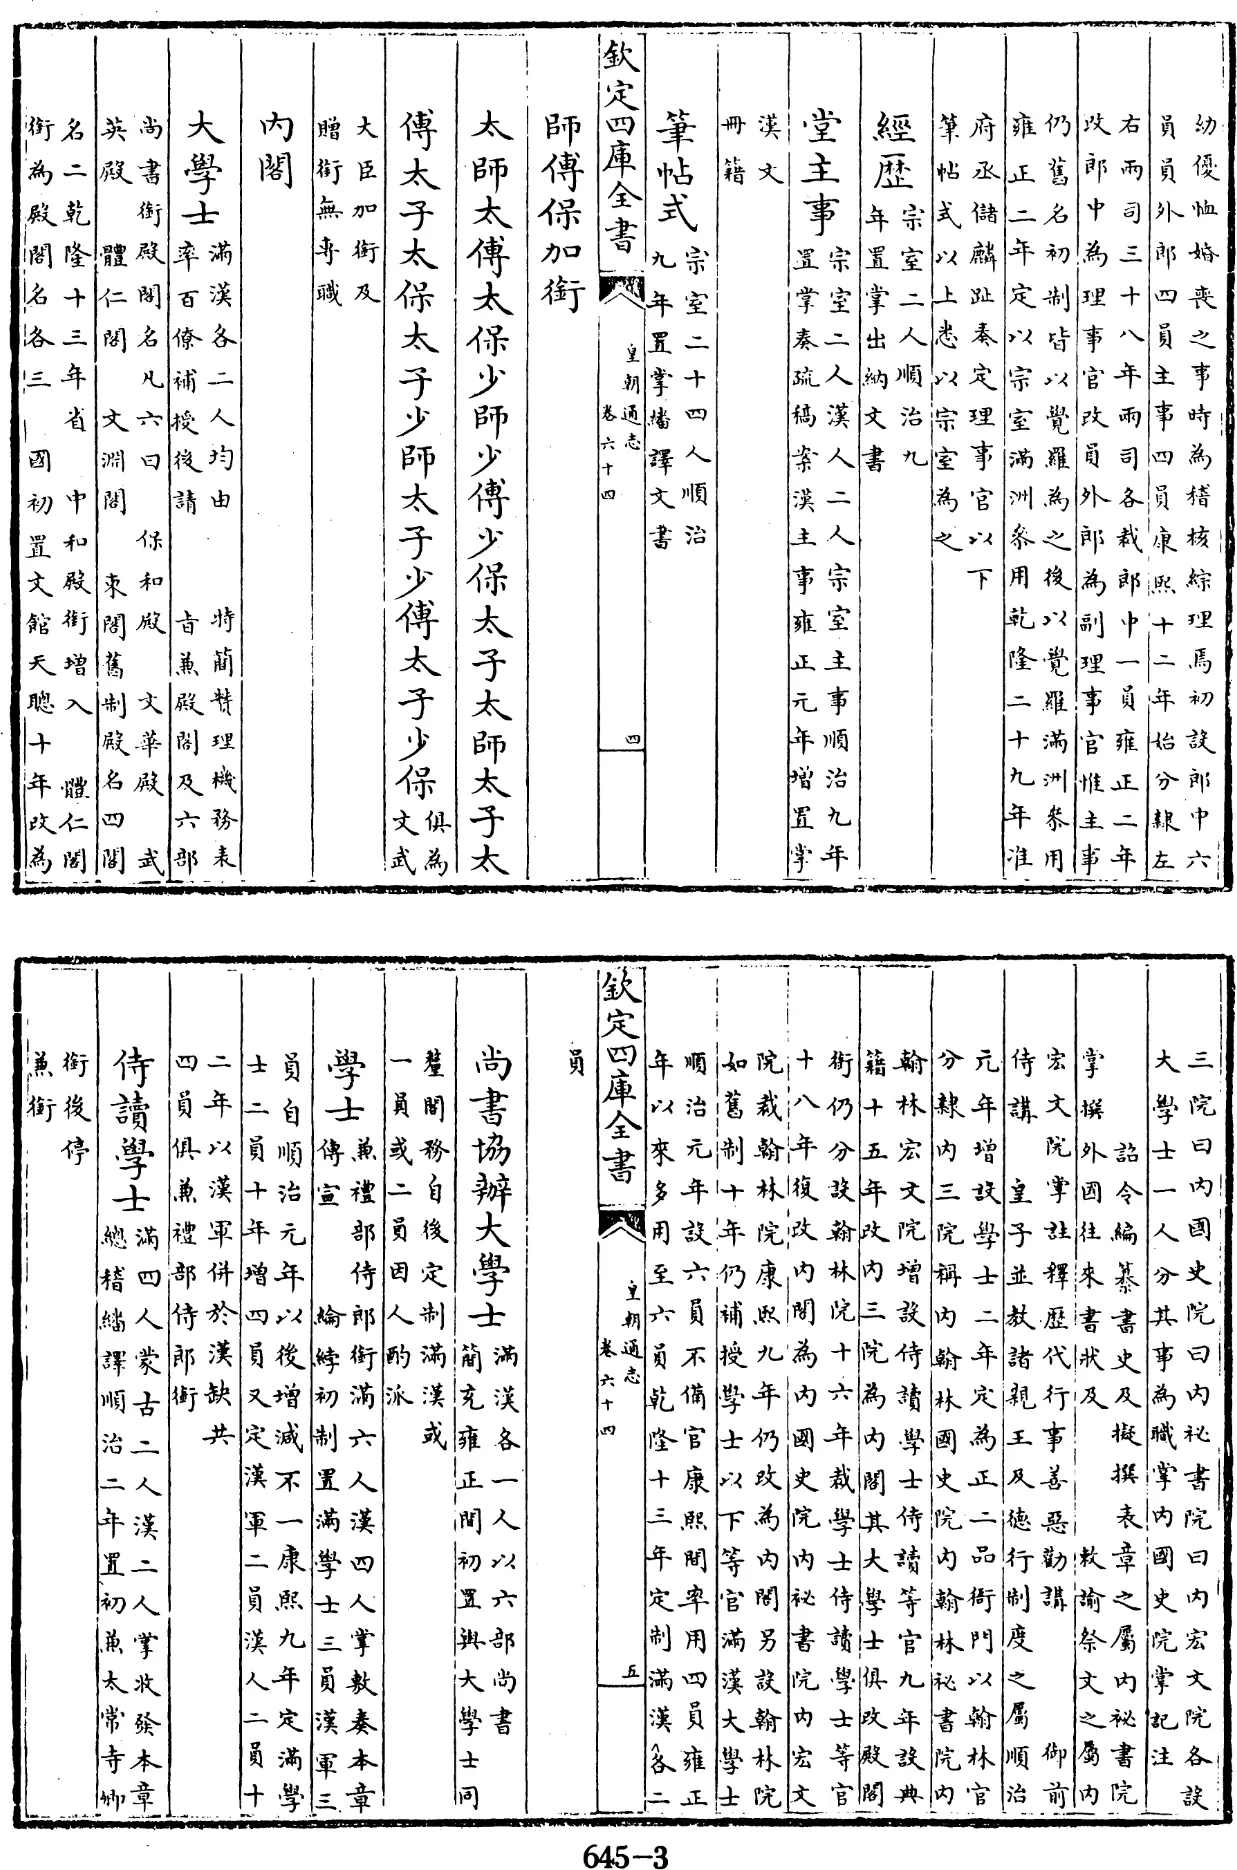 幼優恤婚喪之事時為稽核綜理焉初設郎中六
員員外郎四員主事四員康熙十二年始分隸左
右兩司三十八年兩司各裁郎中一員雍正二年
改郎中為理事官改員外郎為副理事官惟主事
仍舊名初制皆以覺羅為之後以覺羅滿洲叅用
雍正二年定以宗室滿洲叅用乾隆二十九年准
府丞儲麟趾奏定理事官以下
筆帖式以上悉以宗室為之
經歷
宗室二人順治九
年置掌出納文書
堂主事
宗室二人漢人二人宗室主事順治九年
置掌奏疏稿案漢主事雍正元年增置掌
漢文
冊籍
筆帖式
宗室二十四人順治
九年置掌繙譯文書
欽定四庫全書
皇朝通志
卷六十四
四
師傅保加銜
太師太傅太保少師少傅少保太子太師太子太
傅太子太保太子少師太子少傅太子少保
俱為
文武
大臣加銜及
贈銜無專職
內閣
大學士
滿漢各二人均由 特簡贊理機務表
率百僚補授後請 旨兼殿閣及六部
尚書銜殿閣名凡六曰 保和殿 文華殿 武
英殿 體仁閣 文淵閣 東閣舊制殿名四閣
名二乾隆十三年省 中和殿銜增入 體仁閣
銜為殿閣名各三 國初置文館天聰十年改為
三院曰內國史院曰內祕書院曰內宏文院各設
大學士一人分其事為職掌內國史院掌記注
詔令編纂書史及擬撰表章之屬內祕書院
掌撰外國往來書狀及 敕諭祭文之屬內
宏文院掌註釋歷代行事善惡勸講 御前
侍講 皇子並教諸親王及德行制度之屬順治
元年增設學士二年定為正二品衙門以翰林官
分隸內三院稱內翰林國史院內翰林祕書院內
翰林宏文院增設侍讀學士侍讀等官九年設典
籍十五年改內三院為內閣其大學士俱改殿閣
銜仍分設翰林院十六年裁學士侍讀學士等官
十八年復改內閣為內國史院內祕書院內宏文
院裁翰林院康熙九年仍改為內閣另設翰林院
如舊制十年仍補授學士以下等官滿漢大學士
順治元年設六員不備官康熙間率用四員雍正
年以來多用至六員乾隆十三年定制滿漢各二
欽定四庫全書
皇朝通志
卷六十四
五
員
尚書協辦大學士
滿漢各一人以六部尚書
簡充雍正間初置與大學士同
釐閣務自後定制滿漢或
一員或二員因人酌派
學士
兼禮部侍郎銜滿六人漢四人掌敷奏本章
傳宣 綸綍初制置滿學士三員漢軍三
員自順治元年以後增減不一康熙九年定滿學
士二員十年增四員又定漢軍二員漢人二員十
二年以漢軍併於漢缺共
四員俱兼禮部侍郎銜
侍讀學士
滿四人蒙古二人漢二人掌收發本章
總稽繙譯順治二年置初兼太常寺卿
銜後停
兼銜
645-3